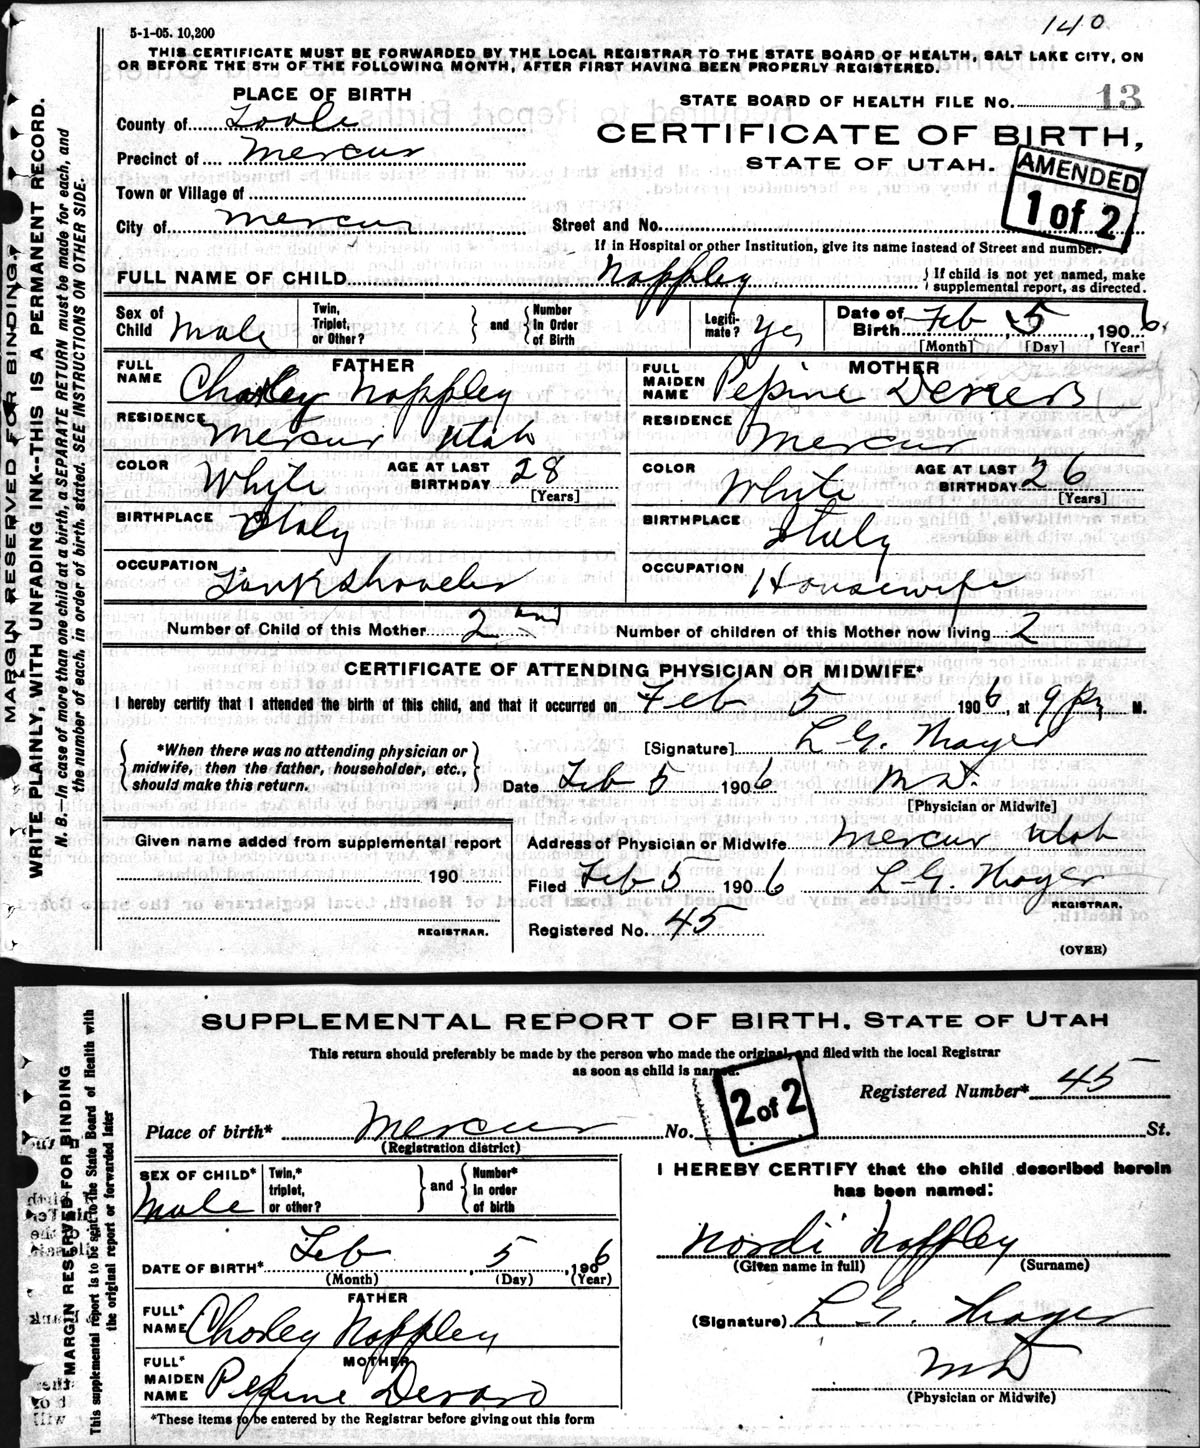 140
5-1-05. 10,200
THIS CERTIFICATE MUST BE FORWARDED BY THE LOCAL REGISTRAR TO THE STATE BOARD OF HEALTH, SALT LAKE CITY, ON
OR BEFORE THE 5TH OF THE FOLLOWING MONTH, AFTER FIRST HAVING BEEN PROPERLY REGISTERED.
PLACE OF BIRTH
STATE BOARD OF HEALTH FILE No. 13
County of Tooele
CERTIFICATE OF BIRTH,
Precinct of Mercur
STATE OF UTAH.
AMENDED
1 of 2
Town or Village of
City of Mercur
Street and No.
If in Hospital or other Institution, give its name instead of Street and number.
FULL NAME OF CHILD Noffley
If child is not yet named, make
supplemental report, as directed.
Sex of Child Male
Twin, Triplet, or Other?
and
Number In Order of Birth
Legiti-mate? Yes
Date of Birth Feb 5, 1906.
[Month] [Day] [Year]
FATHER
FULL NAME Charley Noffley
MOTHER
FULL MAIDEN NAME Pepine
RESIDENCE Mercur Utah
RESIDENCE Mercur
COLOR White
AGE AT LAST BIRTHDAY 28
[Years]
COLOR White
AGE AT LAST BIRTHDAY 26
[Years]
BIRTHPLACE Italy
BIRTHPLACE Italy
OCCUPATION Tank Shoveler
OCCUPATION Housewife
Number of Child of this Mother 2nd
Number of children of this Mother now living 2
CERTIFICATE OF ATTENDING PHYSICIAN OR MIDWIFE*
I hereby certify that I attended the birth of this child, and that it occurred on Feb 5 1906, at 9 P M.
*When there was no attending physician or
midwife, then the father, householder, etc.,
should make this return.
[Signature] L. G. Thayer
Date Feb 5 1906 M.D.
[Physician or Midwife]
Given name added from supplemental report
190
REGISTRAR.
Address of Physician or Midwife Mercur Utah
Filed Feb 5 1906 L-G. Thayer
REGISTRAR.
Registered No. 45
(OVER)
MARGIN RESERVED FOR BINDING.
WRITE PLAINLY, WITH UNFADING INK--THIS IS A PERMANENT RECORD.
N. B.--In case of more than one child at a birth, a SEPARATE RETURN must be made for each, and
the number of each, in order of birth, stated. SEE INSTRUCTIONS ON OTHER SIDE.
SUPPLEMENTAL REPORT OF BIRTH, STATE OF UTAH
This return should preferably be made by the person who made the original, and filed with the local Registrar
as soon as child is named.
2 of 2
Registered Number* 45
Place of birth* Mercur No. St.
(Registration district)
SEX OF CHILD* Male
Twin,* triplet, or other?
and
Number* in order of birth
I HEREBY CERTIFY that the child described herein
has been named:
Nordi Noffley
(Given name in full) (Surname)
DATE OF BIRTH* Feb 5, 1906
(Month) (Day) (Year)
FATHER
FULL* NAME Charley Noffley
(Signature) L. G. Thayer
MD
(Physician or Midwife)
MOTHER
FULL* MAIDEN NAME Pepine
*These items to be entered by the Registrar before giving out this form
MARGIN RESERVED FOR BINDING
This supplemental report is to be sent to the State Board of Health with
the original report or forwarded later